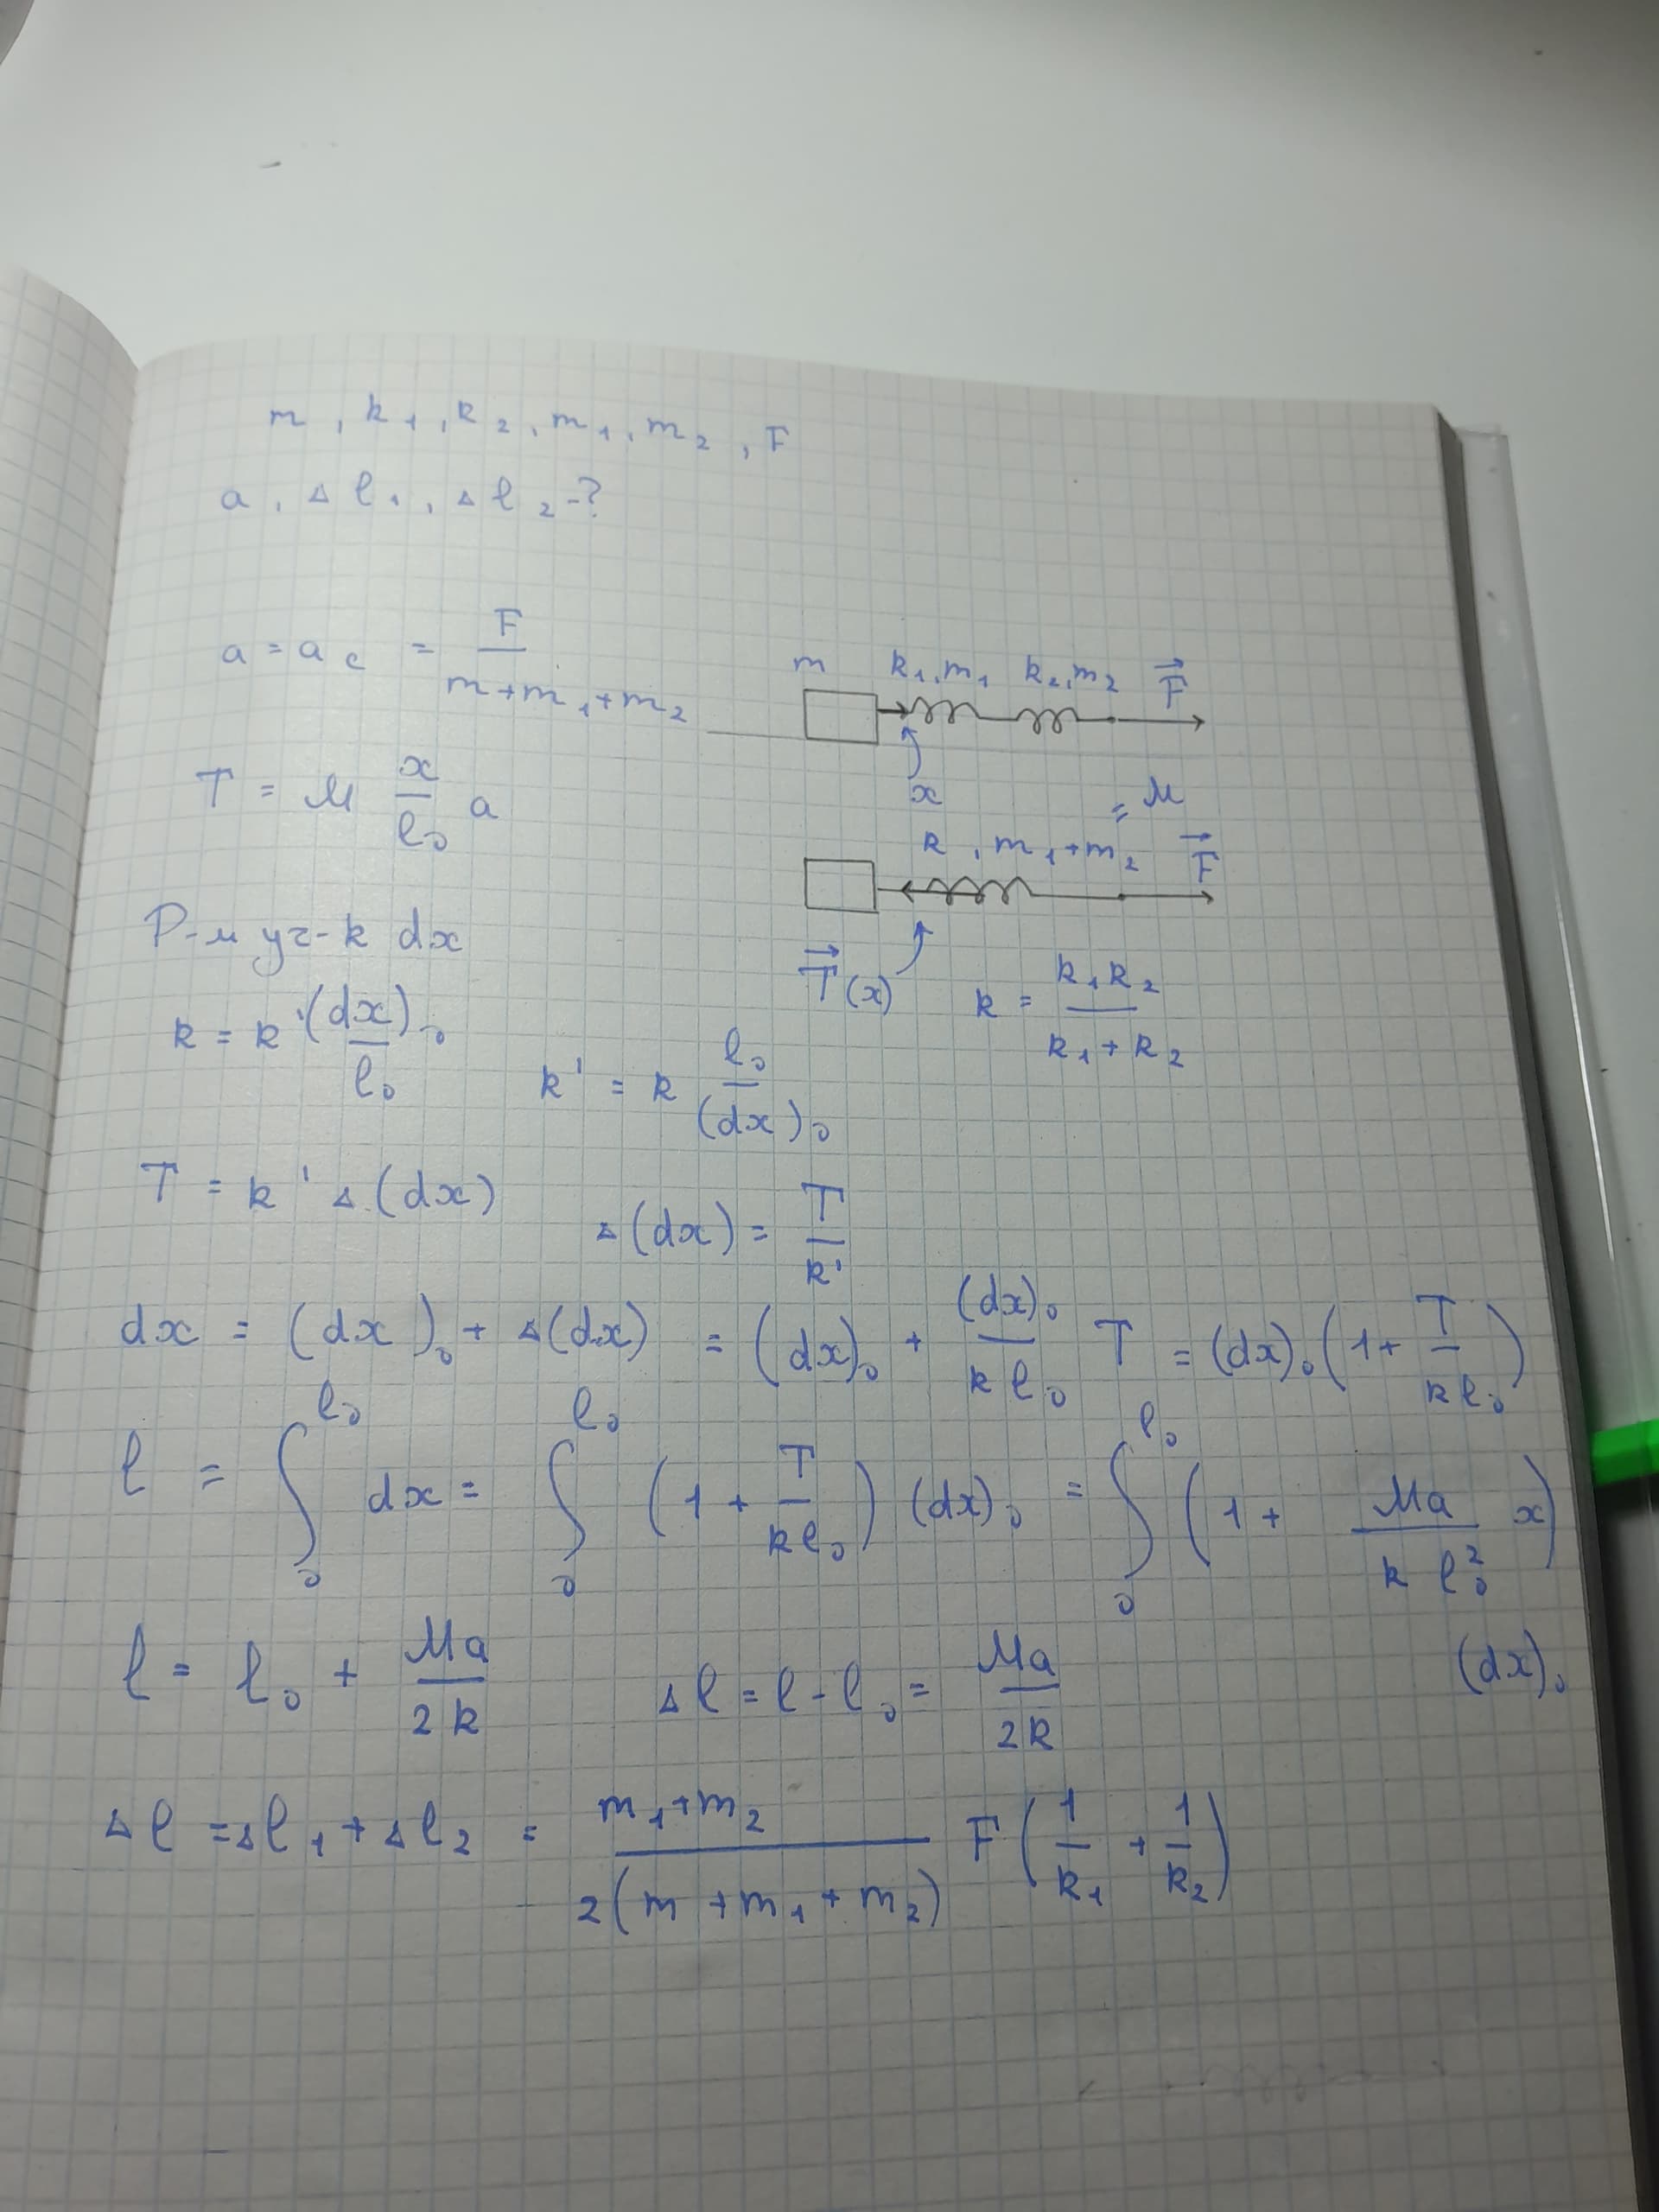 m, k₁, k₂, m₁, m₂, F
a, Δl₁, Δl₂ -?
a = a_c = F / (m+m₁+m₂)
m k₁, m₁ k₂, m₂ F⃗
x
T = M x/l₀ a
= M
k, m₁+m₂ F⃗
T⃗(x)
k = k₁k₂ / (k₁+k₂)
Р-м уч-к dx
k = k' (dx)₀ / l₀
k' = k l₀ / (dx)₀
T = k' Δ(dx)
Δ(dx) = T / k'
dx = (dx)₀ + Δ(dx) = (dx)₀ + (dx)₀ / (k l₀) T = (dx)₀ (1 + T / (k l₀))
l = ∫₀^l₀ dx = ∫₀^l₀ (1 + T / (k l₀)) (dx)₀ = ∫₀^l₀ (1 + Ma / (k l₀²) x)
(dx)₀
l = l₀ + Ma / 2k
Δl = l - l₀ = Ma / 2k
Δl = Δl₁ + Δl₂ = (m₁+m₂) / (2(m + m₁ + m₂)) F (1/k₁ + 1/k₂)